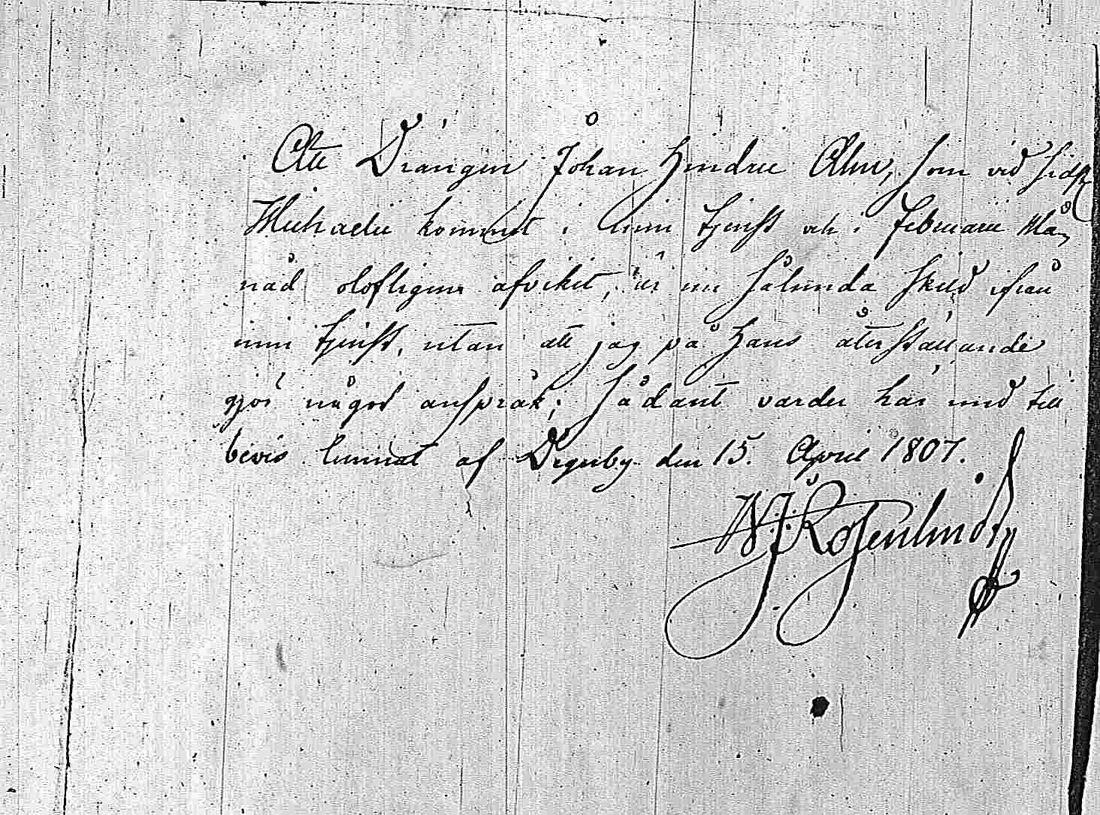 Att Drängen Johan Hindric Alm, som vid sidst
Michaelis kommit i min tjenst och i Februarii Må-
nad olofligen afvikit, är nu sålunda skild ifrån
min tjenst, utan att jag på Hans återställande
gjör något anspråk; Sådant varder här med till
bevis lemnat af Degerby den 15. April 1807.
W.J. Rosenlindt